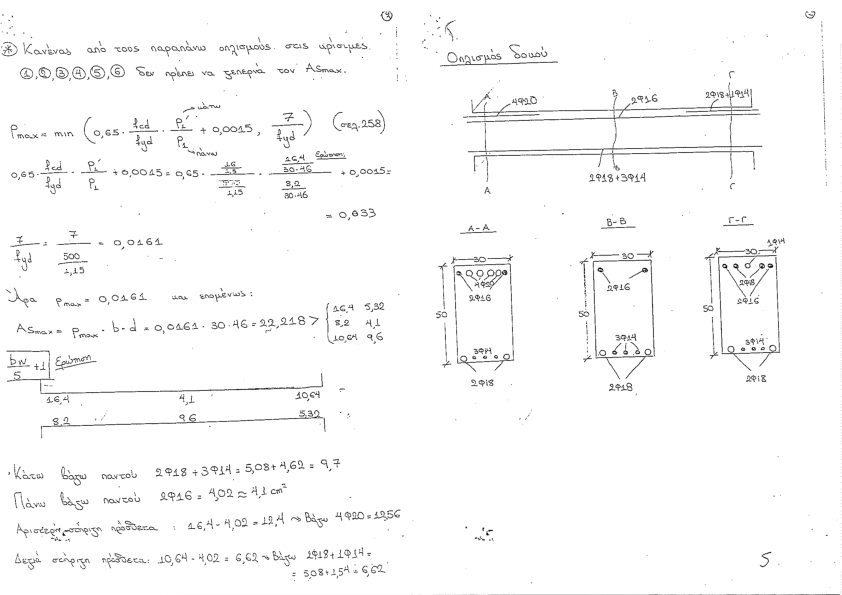 ④
* Κανένας από τους παραπάνω οπλισμούς στις κρίσιμες
①,②,③,④,⑤,⑥ δεν πρέπει να ξεπερνά τον ASmax.
κάτω
ρmax = min (0,65 · fcd/fyd · ρ1'/ρ1 + 0,0015 , 7/fyd) (σελ.258)
πάνω
0,65 · fcd/fyd · ρ1'/ρ1 + 0,0015 = 0,65 · (16/1,5)/(500/1,15) · (16,4/30·46)/(8,2/30·46) + 0,0015 =
Ερώτηση
= 0,633
7/fyd = 7/(500/1,15) = 0,0161
Άρα ρmax = 0,0161 και επομένως:
ASmax = ρmax · b · d = 0,0161 · 30 · 46 = 22,218 > { 16,4 5,32
8,2 4,1
10,64 9,6
bw/5 + 1 Ερώτηση
16,4 4,1 10,64
8,2 9,6 5,32
Κάτω βάζω παντού 2Φ18 + 3Φ14 = 5,08 + 4,62 = 9,7
Πάνω βάζω παντού 2Φ16 = 4,02 ≈ 4,1 cm²
Αριστερή στήριξη πρόσθετα : 16,4 - 4,02 = 12,4 → Βάζω 4Φ20 = 12,56
Δεξιά στήριξη πρόσθετα: 10,64 - 4,02 = 6,62 → Βάζω 2Φ18 + 1Φ14 =
= 5,08 + 1,54 = 6,62
Οπλισμός δοκού
Α Β Γ
4Φ20 2Φ16 2Φ18+1Φ14
2Φ18+3Φ14
Α Β Γ
Α-Α Β-Β Γ-Γ
1Φ14
30 30 30
4Φ20 2Φ16 2Φ18
2Φ16 2Φ16
50 50 50
3Φ14 3Φ14 3Φ14
2Φ18 2Φ18 2Φ18
5